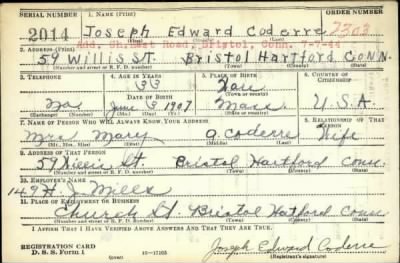 SERIAL NUMBER 1. NAME (Print) ORDER NUMBER
2014 Joseph Edward Coderre
(First) (Middle) (Last)
2. ADDRESS (Print)
59 Willis St. Bristol Hartford CONN.
(Number and street or R. F. D. number) (Town) (County) (State)
3. TELEPHONE 4. AGE IN YEARS 5. PLACE OF BIRTH 6. COUNTRY OF CITIZENSHIP
33
(Town or county)
No DATE OF BIRTH June 3 1907 Mass U.S.A.
(Exchange) (Number) (Mo.) (Day) (Yr.) (State or country)
7. NAME OF PERSON WHO WILL ALWAYS KNOW YOUR ADDRESS 8. RELATIONSHIP OF THAT PERSON
Mrs Mary A. Coderre Wife
(Mr., Mrs., Miss) (First) (Middle) (Last)
9. ADDRESS OF THAT PERSON
59 Willis St. Bristol Hartford Conn.
(Number and street or R. F. D. number) (Town) (County) (State)
10. EMPLOYER'S NAME
J. Mills
11. PLACE OF EMPLOYMENT OR BUSINESS
Church St. Bristol Hatford Conn
(Number and street or R. F. D. number) (Town) (County) (State)
I AFFIRM THAT I HAVE VERIFIED ABOVE ANSWERS AND THAT THEY ARE TRUE.
REGISTRATION CARD
D. S. S. FORM 1 16-17105 Joseph Edward Coderre
(Registrant's signature)